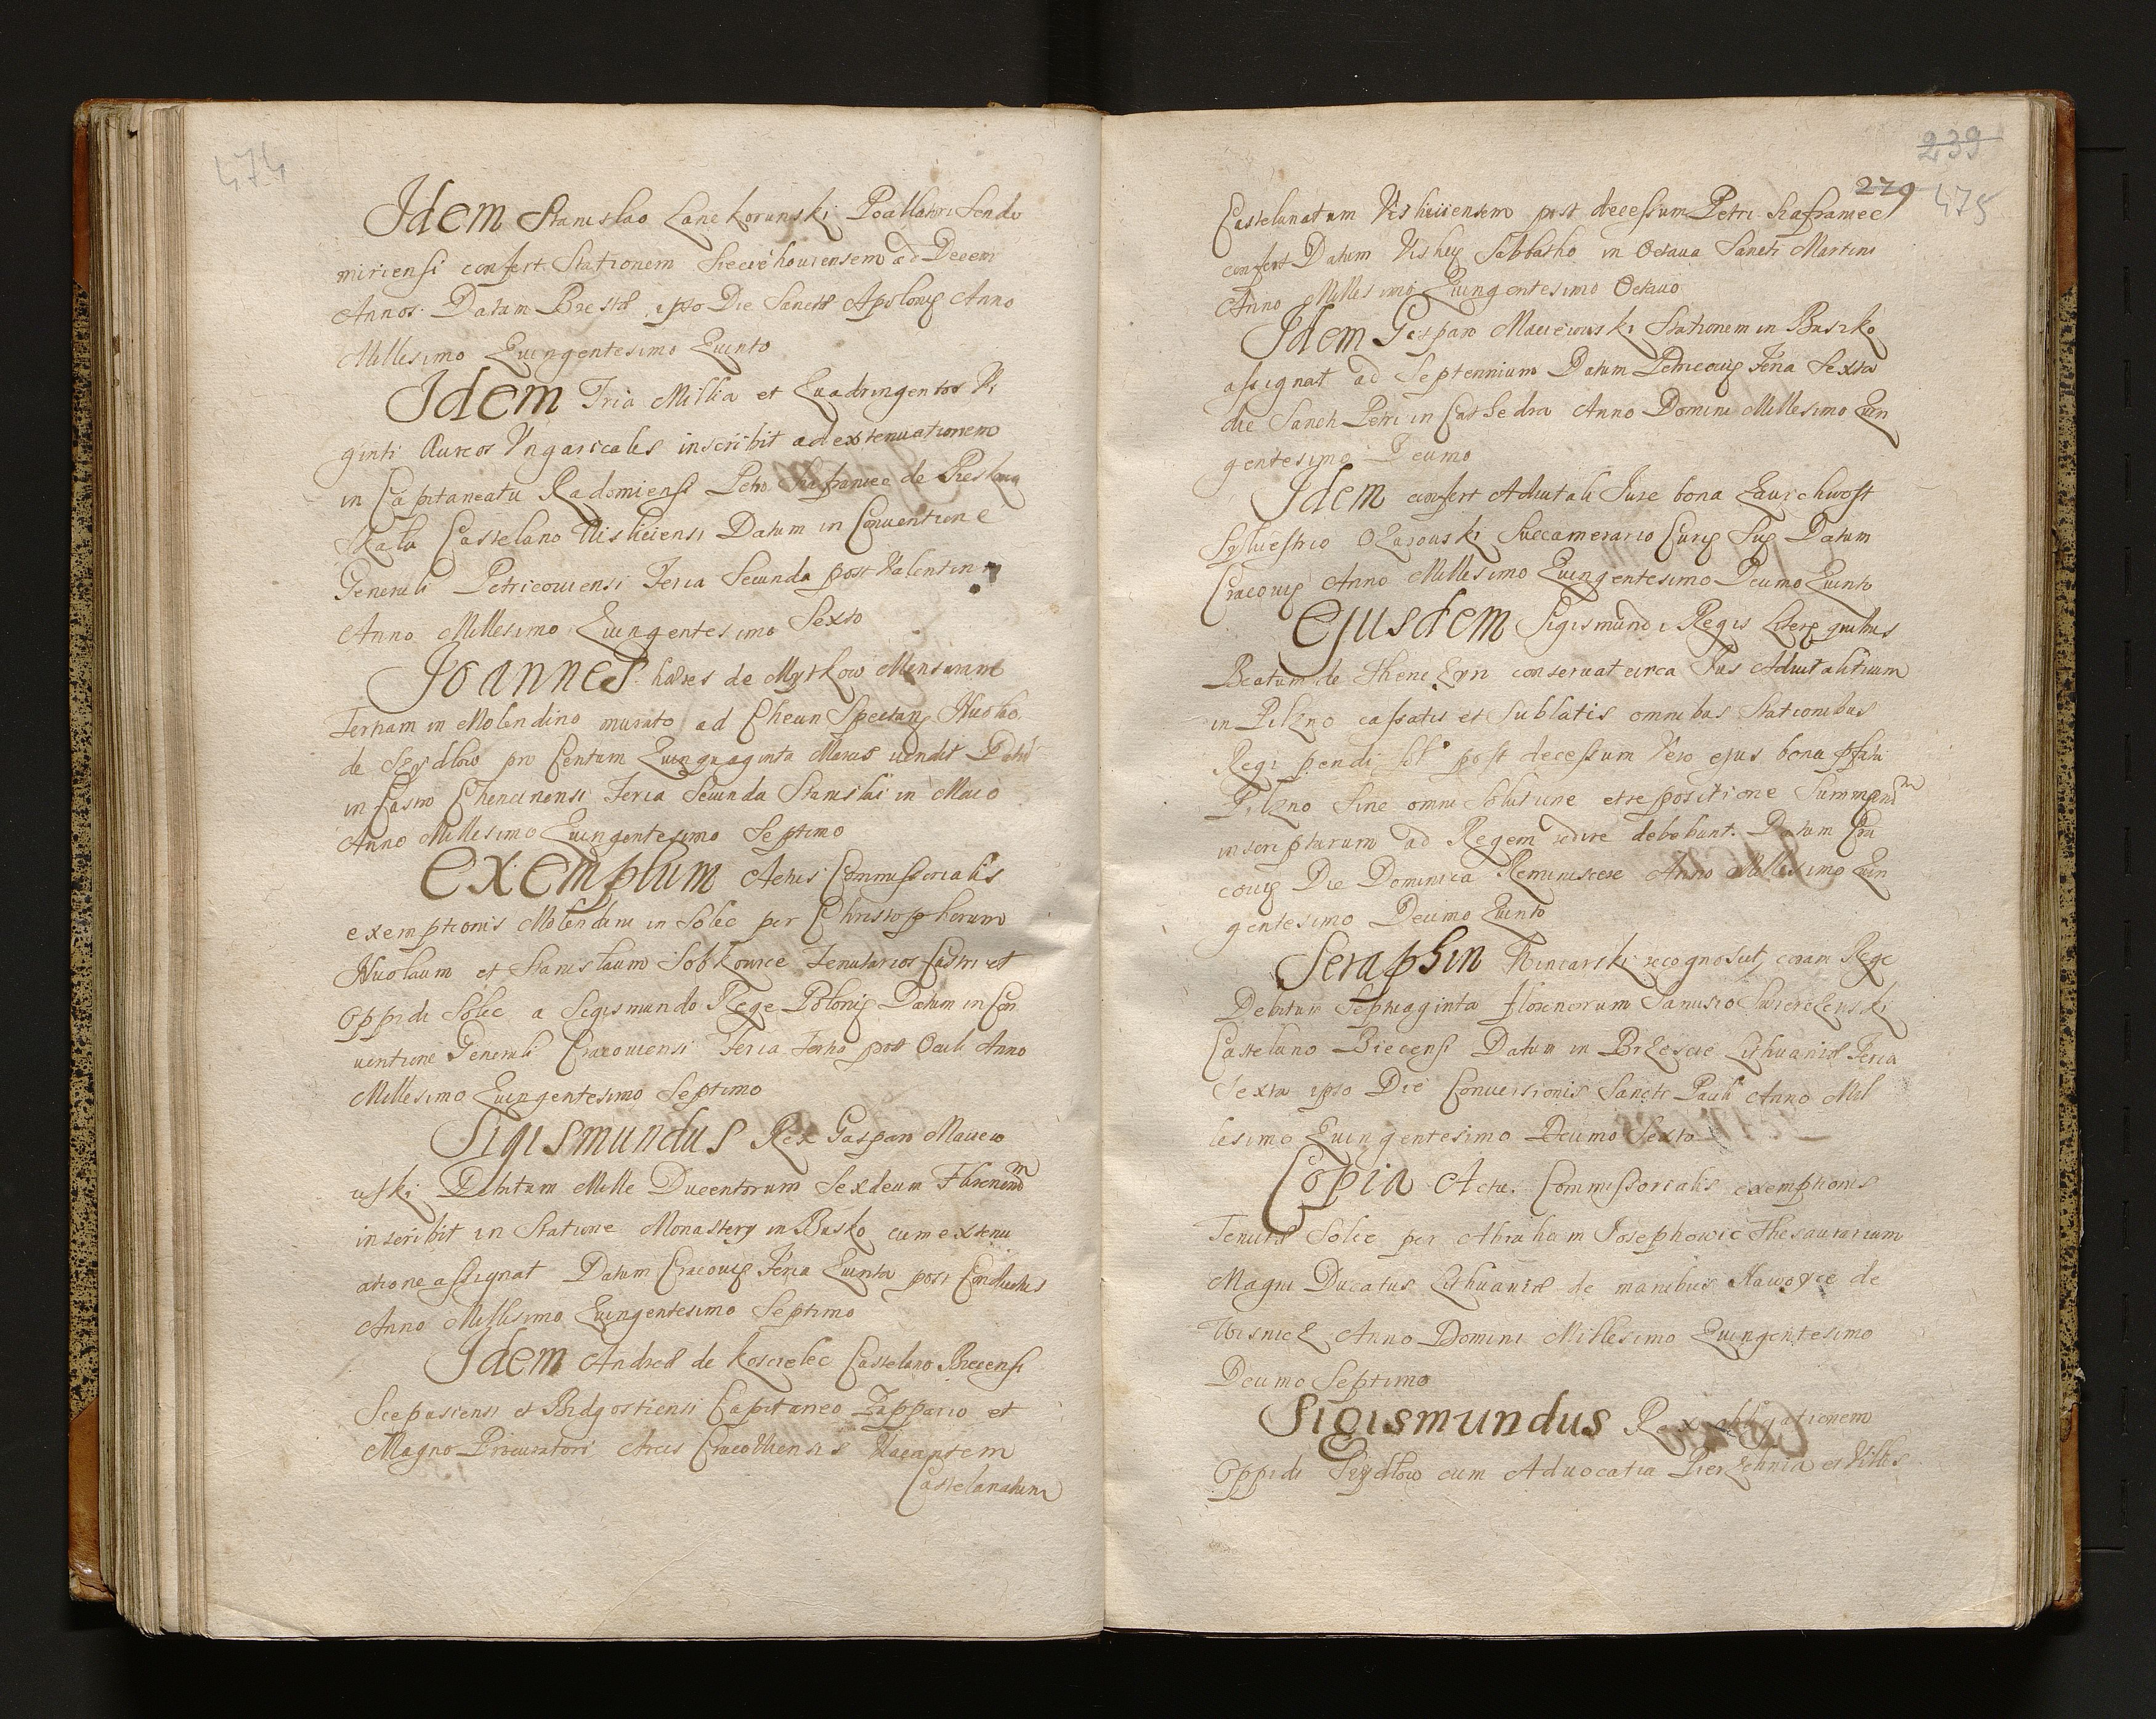 474
Idem Stanislao Lanckorunski Poallatin: Sendo
miriensi confert Stationem Sieciechouiensem ad Decem
Annos. Datum Brestæ ipso Die Sanctæ Apoloniæ Anno
Millesimo Quingentesimo Quinto
Idem Tria Millia et Quadringentos Vi
ginti Aureos Vngaricales inscribit ad extenuationem
in Capitaneatu Radomiensi Petro Szafraniec de Pieskowa
Skala Castelano Visliciensi Datum in Conuentione
Generali Petricouiensi Feria Secunda post Valentini
Anno Millesimo Quingentesimo Sexto
Joannes hæres de Myrkow Mensuram
Tertiam in Molendino murato ad Checin Spectans Nicolao
de Szydlow pro Centum Quinquaginta Marcis uendit Datum
in Castro Chencinensi Feria Secunda Stanislai in Maio
Anno Millesimo Quingentesimo Septimo
Exemplum Actus Commissorialis
exemptionis Molendini in Solec per Christopherum
Nicolaum et Stanislaum Sobkowice Tenutarios Castri et
Oppidi Solec a Sigismundo Rege Poloniæ Datum in Con
uentione Generali Cracouiensi Feria Tertia post Oculi Anno
Millesimo Quingentesimo Septimo
Sigismundus Rex Gaspari Macieio
uski Debitum Mille Ducentorum Sexdecim Florenorum
inscribit in Statione Monastery in Busko cum extenu
atione assignat Datum Cracouiæ Feria Quinta post Conductus
Anno Millesimo Quingentesimo Septimo
Idem Andreæ de Koscielec Castelano Biecensi
Scepusiensi et Bidgostiensi Capitaneo Zuppario et
Magno Procuratori Arcis Cracouiensis Vacantem
Castelanatum
239
279 475
Castelanatum Visliciensem post decessum Petri Szafraniec
confert Datum Visliciæ Sabbatho in Octaua Sancti Martini
Anno Millesimo Quingentesimo Octauo
Idem Gaspari Macieiouski Stationem in Buszko
assignat ad Septennium Datum Petricouiæ Feria Sexta
die Sancti Petri in Cathedra Anno Domini Millesimo Quin
gentesimo Decimo
Idem confert Aduitali Jure bona Zauichwost
Syluestrio Ozarouski Succamerario Curiæ Suæ Datum
Cracouiæ Anno Millesimo Quingentesimo Decimo Quinto
Ejusdem Sigismundi Regis Literæ quibus
Beatam de Thenczyn conseruat circa Jus Aduitalitium
in Pilzno cassatis et Sublatis omnibus Stationibus
Regi pendi sol: post decessum Vero ejus bona pfati
Pilzno Sine omni Solutione et repositione Summarum
inscriptarum ad Regem redire debebunt. Datum Cra
couiæ Die Dominica Reminiscere Anno Millesimo Quin
gentesimo Decimo Quinto
Seraphin recognoscit coram Rege
Debitum Septuaginta florenorum Janusio Swierczewski
Castelano Biecensi Datum in Brzescie Lithuaniæ Feria
Sexta ipso Die Conuersionis Sancti Pauli Anno Mil
lesimo Quingentesimo Decimo Sexto
Copia Actus Commissorialis exemptionis
Tenutæ Solec per Abraham Josephowic Thesaurarium
Magni Ducatus Lithuaniæ de manibus Nawoyce de
Wisnicz Anno Domini Millesimo Quingentesimo
Decimo Septimo
Sigismundus Rex obligationem
Oppidi Szydlow cum Aduocatia Pierzchnia et Villis